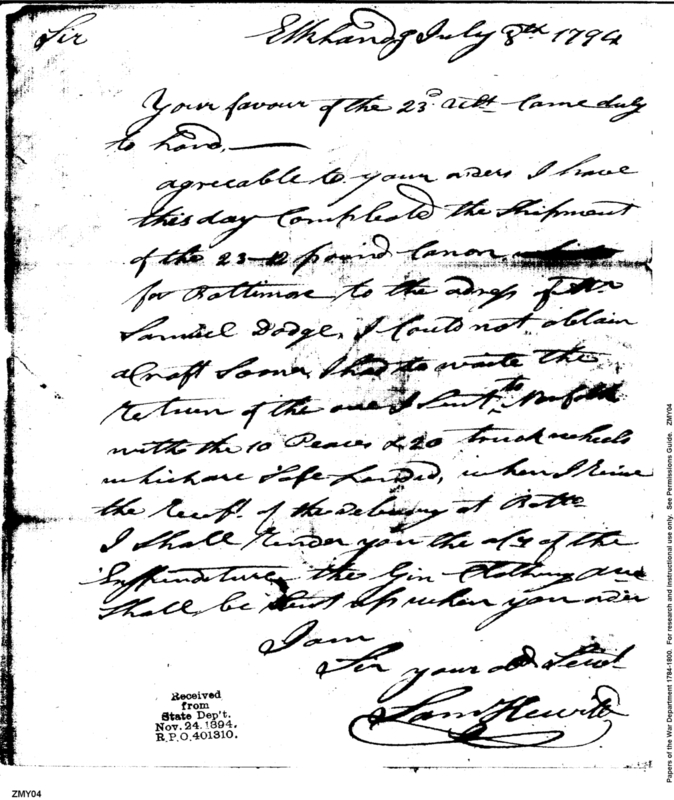 Sir Elkhand July 8th 1794
Your favour of the 23d Ult. Came duly
to hand,
agreeable to your orders I have
this day Compleated the Shipment
of the 23-12 pound Canon
for Baltimore to the adress of Mr
Samuel Dodge, I Could not obtain
a Craft Sooner, I had to waite the
return of the one I Sent to Norfolk
with the 10 Peaces & 20 truck wheels
which are Safe Landed, when I
the of the delivery at Balto
I Shall render you the of the
the Gin Clothing
Shall be Sent up when you order
I am
Sir your
Saml Hewitt
Received
from
State Dep't.
Nov. 24. 1894.
R.P.O. 401310.
ZMY04
Papers of the War Department 1784-1800. For research and instructional use only. See Permissions Guide. ZMY04